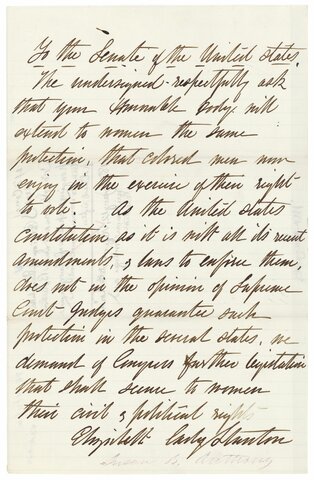 To the Senate of the United States.
The undersigned respectfully ask
that your Honorable body will
extend to women the same
protection, that colored men now
enjoy in the exercise of their right
to vote. As the United States
constitution as it is with all its recent
amendments, & laws to enforce them,
does not in the opinion of Supreme
Court Judges guarantee such
protection in the several states, we
demand of Congress further legislation
that shall secure to women
their civil & political rights
Elizabeth Cady Stanton
Susan B. Anthony